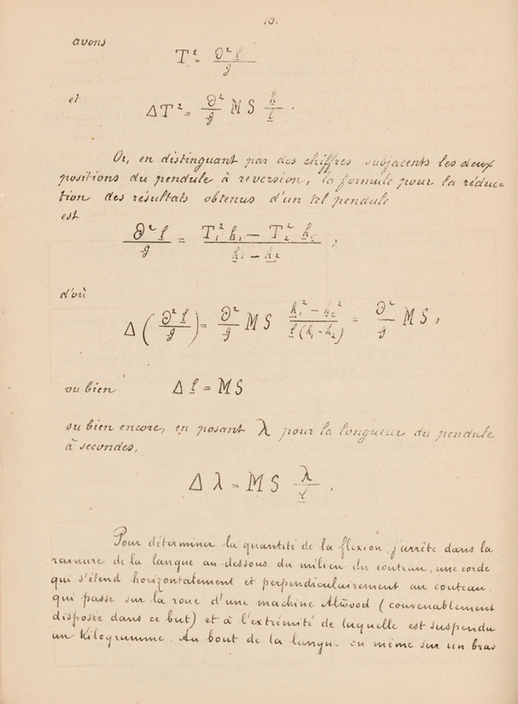 10.
avons
T² = ∂² l / g
et
Δ T² = ∂²/g M S h/l .
Or, en distinguant par des chiffres subjacents les deux
positions du pendule à reversion, la formule pour la réduc-
tion des résultats obtenus d'un tel pendule
est
∂² l / g = T₁² h₁ — T₂² h₂ / h₁ — h₂ ,
d'où
Δ ( ∂² l / g ) = ∂²/g M S h₁² — h₂² / l (h₁ - h₂) = ∂²/g M S ,
ou bien Δ l = M S
ou bien encore, en posant λ pour la longueur du pendule
à secondes,
Δ λ = M S λ/l .
Pour déterminer la quantité de la flexion j'arrête dans la
rainure de la langue au-dessous du milieu du couteau, une corde
qui s'étend horizontalement et perpendiculairement au couteau,
qui passe sur la roue d'une machine Atwood (convenablement
disposée dans ce but) et à l'extrémité de laquelle est suspendu
un Kilogramme. Au bout de la langue ou même sur un bras